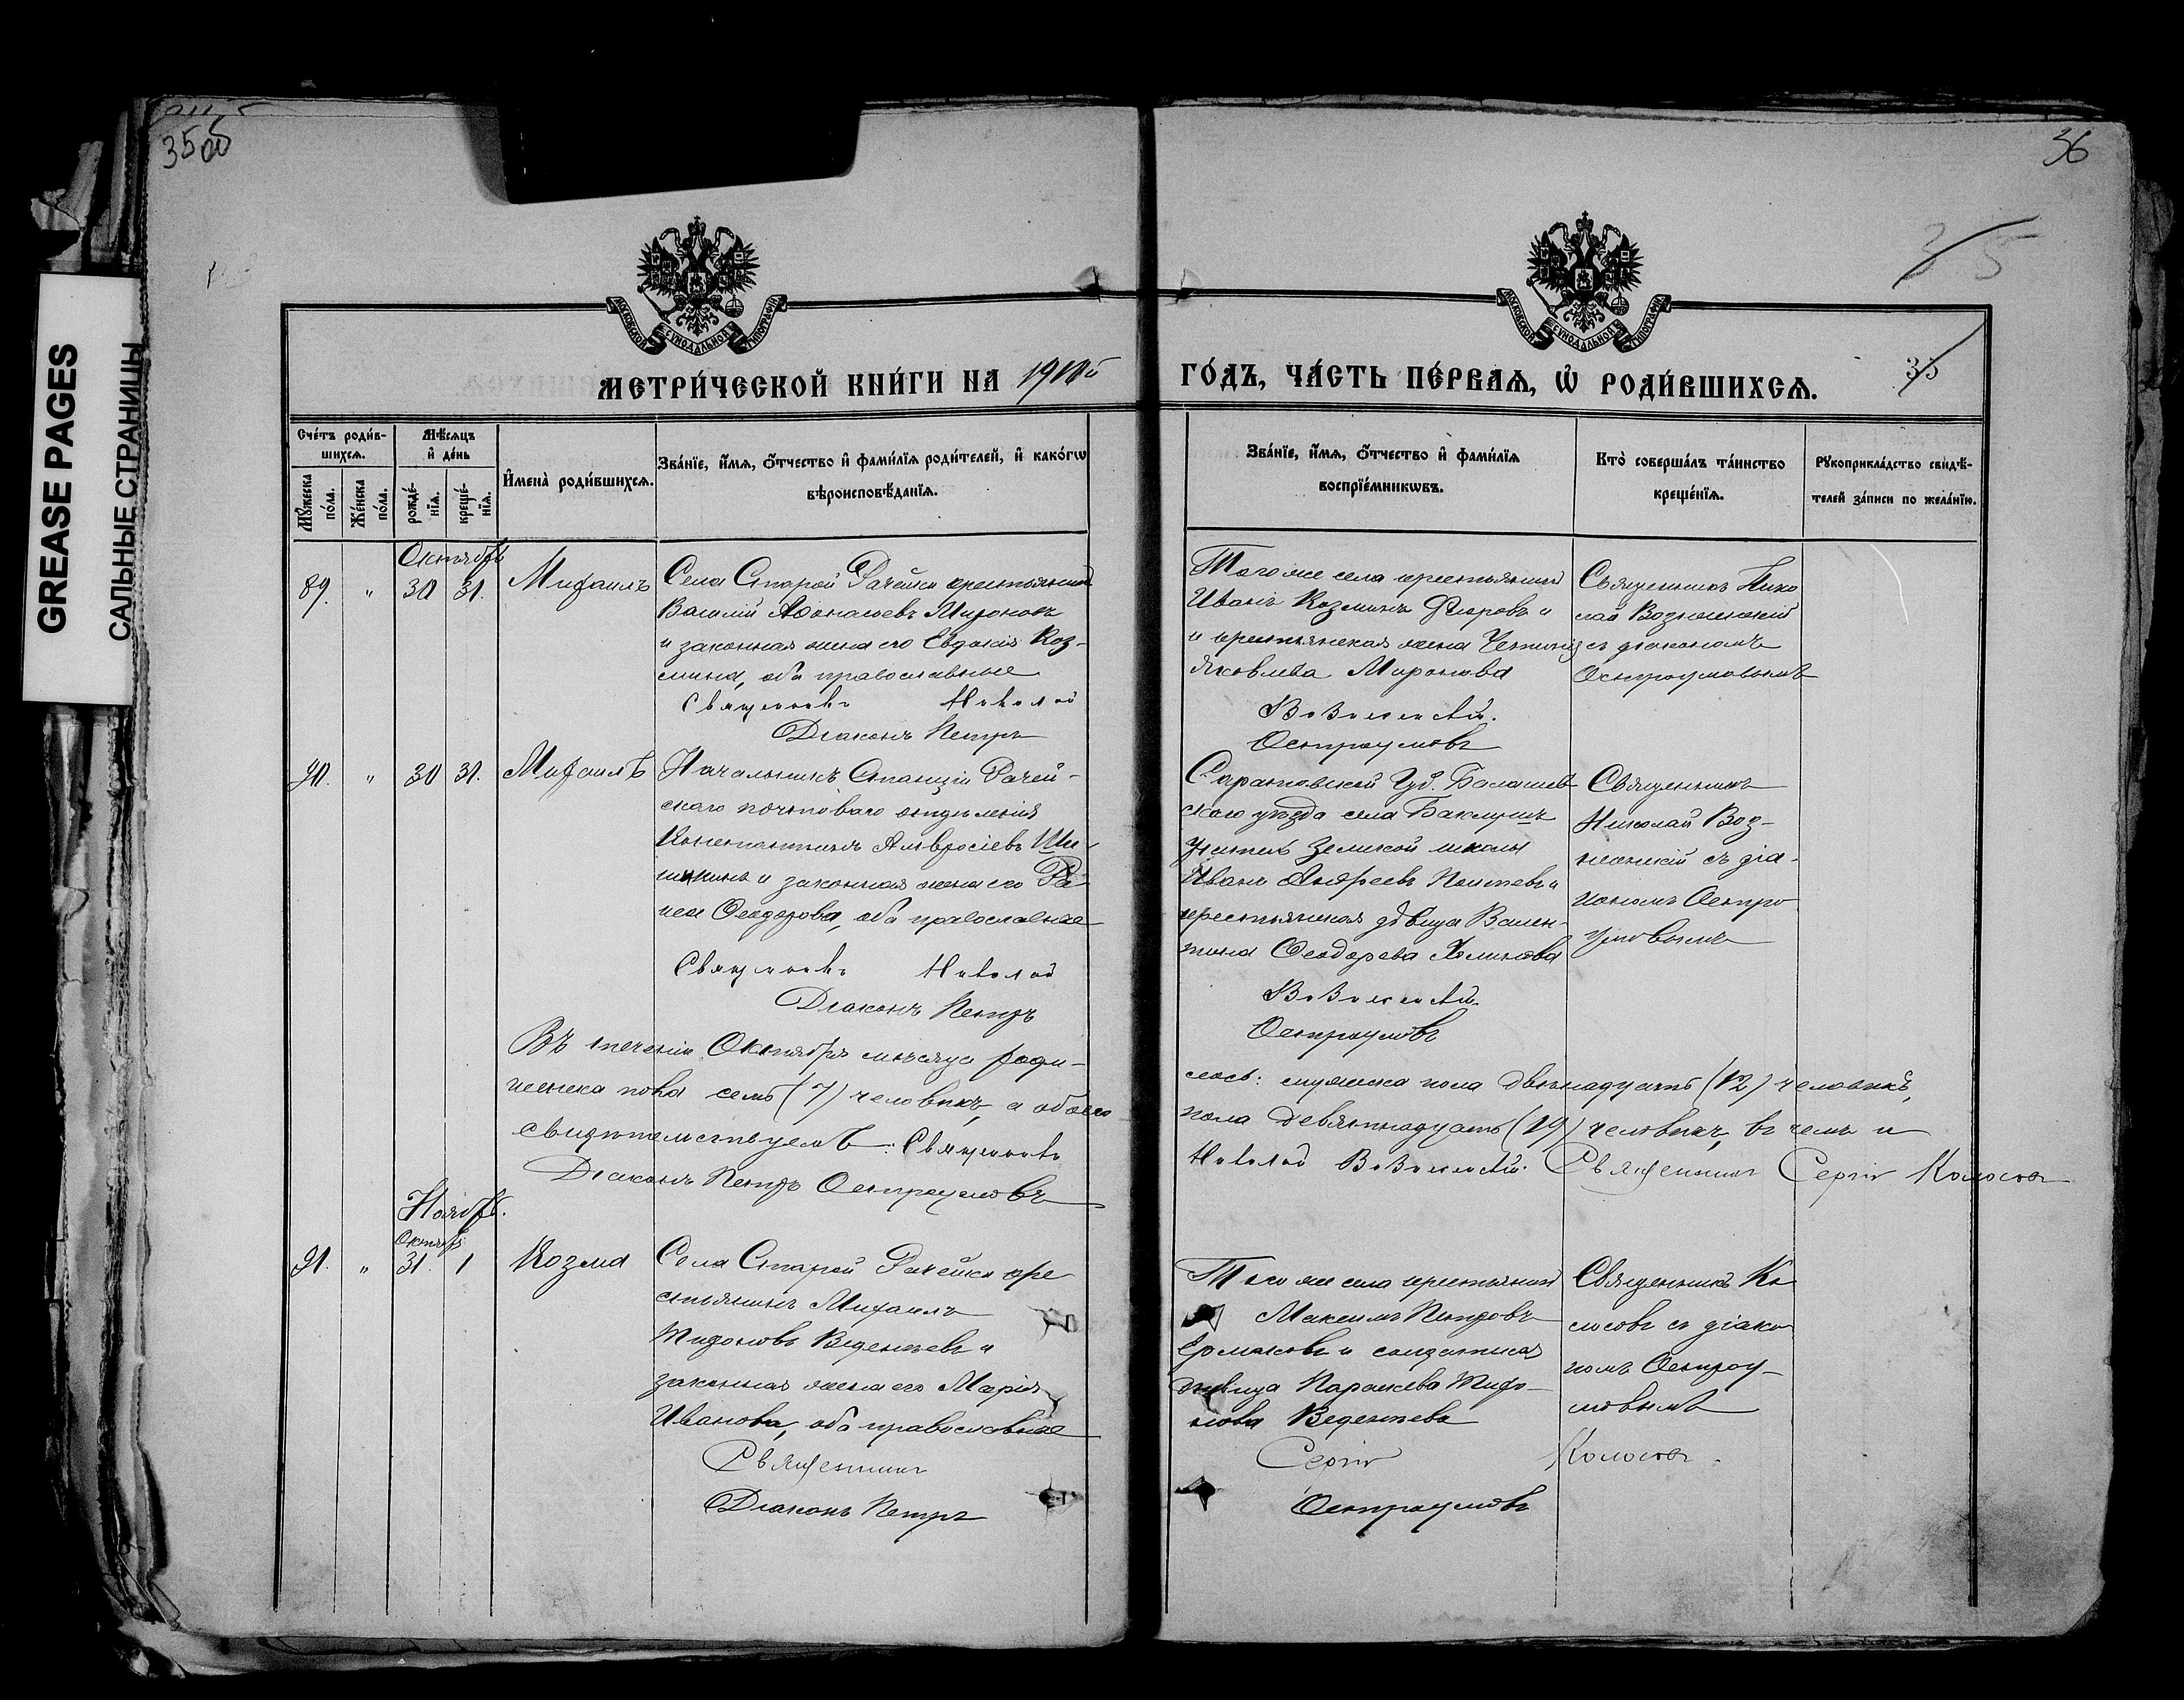 35об
36
GREASE PAGES
САЛЬНЫЕ СТРАНИЦЫ
МОСКОВСКОЙ СѴНОДАЛЬНОЙ ТИПОГРАФІИ
МОСКОВСКОЙ СѴНОДАЛЬНОЙ ТИПОГРАФІИ
35
МЕТРИ́ЧЕСКОЙ КНИ́ГИ НА 1910й ГО́ДЪ, ЧА́СТЬ ПЕ́РВАѦ, Ѡ҆ РОДИ́ВШИХСѦ.
35
Сче́тъ роди́в-
шихсѧ.
Мѣ́сѧцъ
и҆ де́нь
Мꙋ́жеска по́ла.
Же́нска по́ла.
рожде́-нїѧ.
креще́-нїѧ.
И҆мена̀ роди́вшихсѧ.
Зва́нїе, и҆́мѧ, ѻ҆́тчество и҆ фами́лїѧ роди́телей, и҆ како́гѡ
вѣроисповѣ́данїѧ.
Зва́нїе, и҆́мѧ, ѻ҆́тчество и҆ фами́лїѧ
воспрїе́мникѡвъ.
Кто̀ соверша́лъ та́инство
креще́нїѧ.
Рꙋкоприкла́дство свидѣ́-
телей за́писи по жела́нїю.
Октябрь
89. " 30 31. Михаилъ
Села Старой Рачейки крестьянинъ
Василій Аѳонасьевъ Мироновъ
и законная жена его Евдокія Коз-
мина, оба православные
Священникъ Николай
Діаконъ Петръ
Того же села крестьянинъ
Иванъ Козминъ Фроловъ и
и крестьянская жена
Яковлева Миронова
Вознесенскій.
Остроумовъ
Священникъ Нико
лай Вознесенскій
съ діакономъ
Остроумовымъ
90. " 30 31. Михаилъ
Начальникъ Станціи Рачей-
скаго почтоваго отдѣленія
Константинъ Амвросіевъ Ши-
и законная жена его Ра
иса Ѳеодорова, оба православные
Священникъ Николай
Діаконъ Петръ
Саратовской Губ. Балашов
скаго уѣзда села Баклушъ
Учитель Земской школы
Иванъ Андреевъ и
крестьянская дѣвица Вален-
тина Ѳеодорова
Вознесенскій.
Остроумовъ
Священникъ
Николай Воз-
несенскій съ діа-
кономъ Остро
умовымъ
Въ теченіи Октября мѣсяца роди-
лось: мужеска пола двѣнадцать (12) человѣкъ,
женска пола семь (7) человѣкъ, а обоего
пола девятнадцать (19) человѣкъ, въ чемъ и
свидѣтельствуемъ: Священникъ
Николай Вознесенскій. Священникъ Сергій Колосовъ
Діаконъ Петръ Остроумовъ
Ноябрь.
Октябр.
91. " 31. 1 Козма
Села Старой Рачейки кре
стьянинъ Михаилъ
Тихоновъ Веденѣевъ и
законная жена его Марія
Иванова, оба православные
Священникъ
Діаконъ Петръ
Того же села крестьянинъ
Максимъ Петровъ
Ермаковъ и солдатская
дѣвица Параскева Тихо-
нова Веденѣева
Сергій Колосовъ.
Остроумовъ
Священникъ Ко
лосовъ съ діако
номъ Остроу-
мовымъ